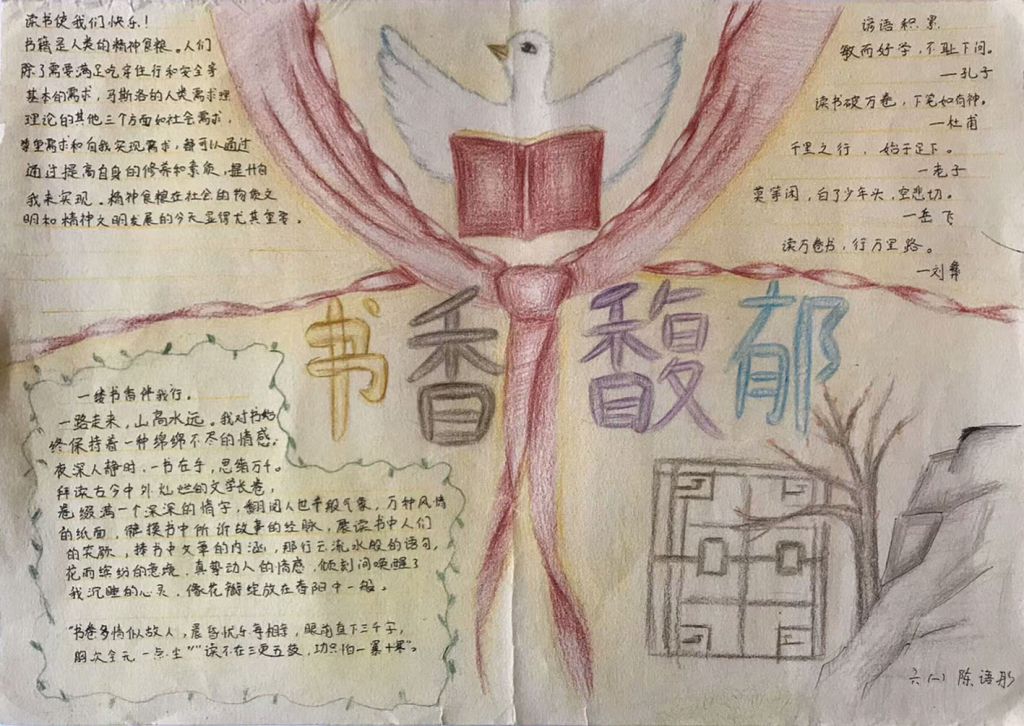 读书使我们快乐!
书籍是人类的精神食粮。人们
除了需要满足吃穿住行和安全等
基本的需求,马斯洛的人类需求理
理论的其他三个方面如社会需求,
尊重需求和自我实现需求,都可以通过
通过提高自身的修养和素质,提升自
我来实现。精神食粮在社会的物质文
明和精神文明发展的今天显得尤其重要。
谚语积累
敏而好学,不耻下问。
—孔子
读书破万卷,下笔如有神。
—杜甫
千里之行,始于足下。
—老子
莫等闲,白了少年头,空悲切。
—岳飞
读万卷书,行万里路。
—刘彝
书香馥郁
一缕书香伴我行。
一路走来,山高水远。我对书始
终保持着一种绵绵不尽的情感。
夜深人静时,一书在手,思绪万千。
拜读古今中外灿烂的文学长卷,
卷缀满一个深深的情字,翻阅人世千般气象,万种风情
的纸面,触摸书中所诉故事的经脉,展读书中人们
的实际,捧书中文章的内涵,那行云流水般的语句,
花雨缤纷的意境,真挚动人的情感,倾刻间唤醒了
我沉睡的心灵,像花瓣绽放在春阳中一般。
"书卷多情似故人,晨昏忧乐每相亲,眼前直下三千字,
胸次全无一点尘""读不在三更五鼓,功只怕一暴十寒"。
六(一) 陈语彤